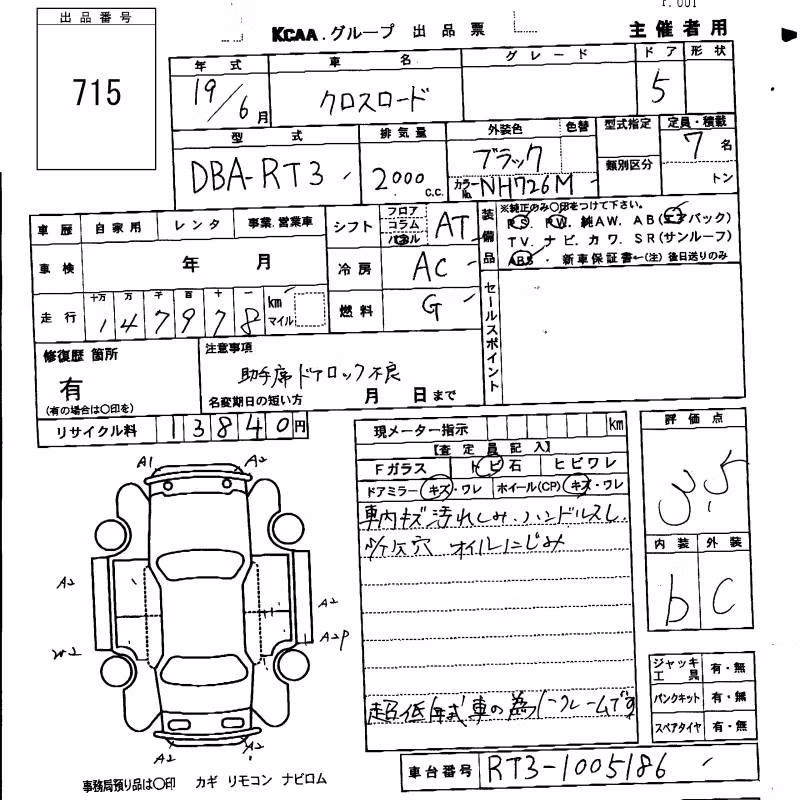 出品番号
715
KCAA.グループ 出品票
主催者用
年式 車名 グレード ドア 形状
19/6月 クロスロード 5
型式 排気量 外装色 色替 型式指定 定員・積載
DBA-RT3 2000 c.c. ブラック 7名
カラーNo. NH726M 類別区分 トン
車歴 自家用 レンタ 事業.営業車
シフト フロア コラム パネル AT
装備品
※純正のみ〇印をつけて下さい。
P.S. P.W. 純AW. AB(エアバック)
TV. ナビ. カワ. SR(サンルーフ)
ABS . 新車保証書←(注)後日送りのみ
車検 年 月
冷房 AC
走行 十万 万 千 百 十 一 km マイル
147978
燃料 G
セールスポイント
修復歴 箇所
有
(有の場合は〇印を)
注意事項
助手席ドアロック不良
名変期日の短い方 月 日まで
リサイクル料 13840円
現メーター指示 km
【査定員記入】
Fガラス トビ石 ヒビワレ
ドアミラー キズ・ワレ ホイール(CP) キズ・ワレ
車内キズ汚れしみ.ハンドルスレ
オイルにじみ
超低年式車の為ノークレームです
評価点
3.5
内装 外装
b C
A1 A2
A2 A2
W2 A2P
A2 A2
ジャッキ工具 有・無
パンクキット 有・無
スペアタイヤ 有・無
車台番号 RT3-1005186
事務局預り品は〇印 カギ リモコン ナビロム